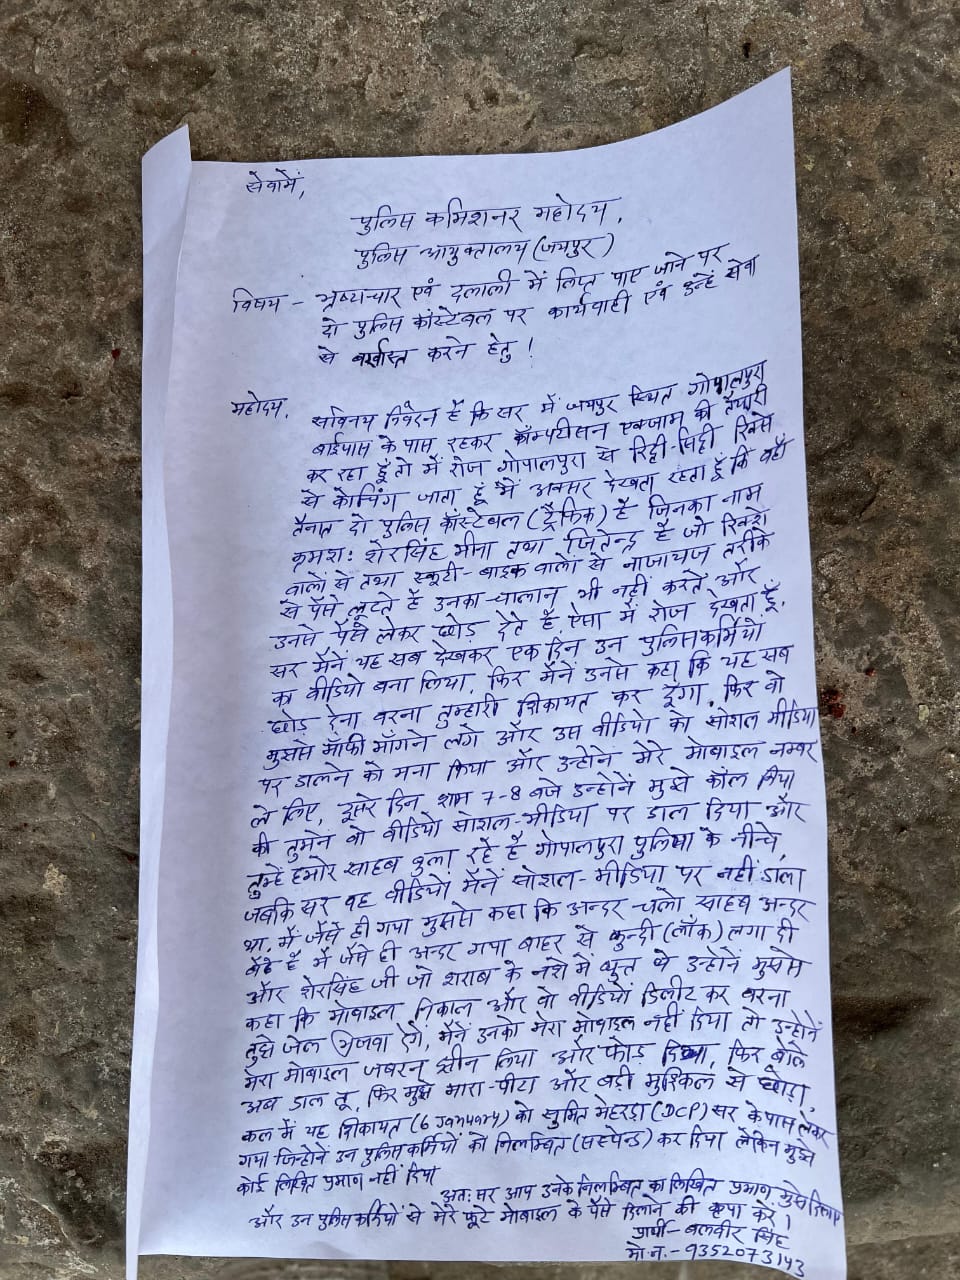 सेवामें,
पुलिस कमिशनर महोदय,
पुलिस आयुक्तालय (जयपुर)
विषय - भ्रष्टाचार एवं दलाली में लिप्त पाए जाने पर
दो पुलिस कांस्टेबल पर कार्यवाही एवं उन्हें सेवा
से बर्खास्त करने हेतु !
महोदय,
सविनय निवेदन है कि सर में जयपुर स्थित गोपालपुरा
बाईपास के पास रहकर कॉम्पटीसन एक्जाम की तैयारी
कर रहा हूँ तो में रोज गोपालपुरा से रिद्दी-सिद्दी रिक्से
से कोचिंग जाता हूँ मैं अक्सर देखता रहता हूँ कि वहाँ
तैनात दो पुलिस कॉस्टेबल (ट्रैफिक) है जिनका नाम
क्रमश: शेरसिंह मीना तथा जितेन्द्र है जो रिक्शे
वालों से तथा स्कूटी-बाइक वालों से नाजायज तरीके
से पैसे लूटते है उनका चालान भी नहीं करते और
उनसे पैसे लेकर छोड़ देते है, ऐसा में रोज देखता हूँ,
सर मैंनें यह सब देखकर एक दिन उन पुलिसकर्मियों
का वीडियो बना लिया, फिर मैंनें उनसे कहा कि यह सब
छोड़ देना वरना तुम्हारी शिकायत कर दूंगा, फिर वो
मुझसे माँफी माँगने लगे और उस वीडियो को सोशल मीडिया
पर डालने को मना किया और उन्होनें मेरे मोबाइल नम्बर
ले लिए, दूसरे दिन शाम 7-8 बजे उन्होनें मुझे कॉल किया
की तुमनें वो वीडियो सोशल-मीडिया पर डाल दिया और
तुम्हे हमारे साहब बुला रहे है गोपालपुरा पुलिया के नीचे,
जबकि सर वह वीडियो मैंनें सोशल-मीडिया पर नहीं डाला
था, में जैसे ही गया मुझसे कहा कि अन्दर चलो साहब अन्दर
बैठे है में जैसे ही अन्दर गया बाहर से कुन्दी (लॉक) लगा दी
और शेरसिंह जी जो शराब के नशे में धुत थे उन्होनें मुझसे
कहा कि मोबाइल निकाल और वो वीडियों डिलीट कर वरना
तुझे जेल भिजवा देंगे, मैंनें उनको मेरा मोबाइल नहीं दिया तो उन्होनें
मेरा मोबाइल जबरन छीन लिया और फोड़ दिया, फिर बोले
अब डाल तू, फिर मुझे मारा-पीटा और बड़ी मुश्किल से छोड़ा,
कल में यह शिकायत (6 January) को सुमित मेहरड़ा (DCP) सर के पास लेकर
गया जिन्होनें उन पुलिसकर्मियों को निलम्बित (सस्पेन्ड) कर दिया लेकिन मुझे
कोई लिखित प्रमाण नहीं दिया
अत: सर आप उनके निलम्बित का लिखित प्रमाण मुझे दिलाए
और उन पुलिसकर्मियों से मेरे फूटे मोबाइल के पैसे दिलाने की कृपा करें।
प्रार्थी- बलवीर सिंह
मो.न.- 9352073143